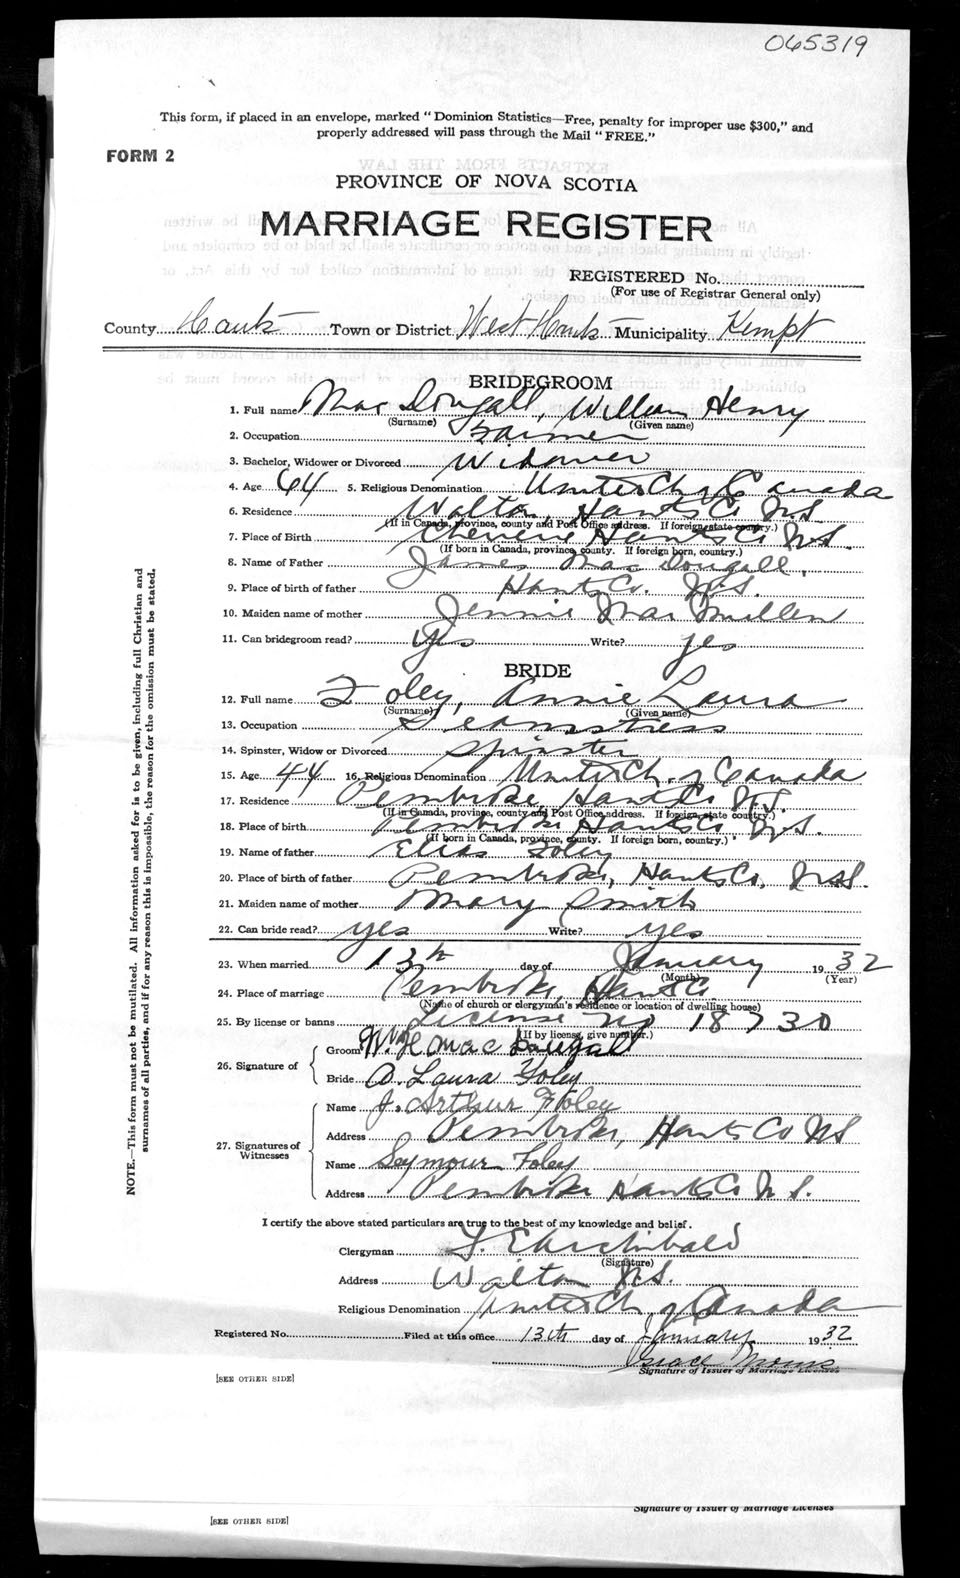 065319
This form, if placed in an envelope, marked "Dominion Statistics—Free, penalty for improper use $300," and
properly addressed will pass through the Mail "FREE."
FORM 2
PROVINCE OF NOVA SCOTIA
MARRIAGE REGISTER
REGISTERED No.
(For use of Registrar General only)
County Hants Town or District West Hants Municipality Kempt
BRIDEGROOM
1. Full name MacDougall, William Henry
(Surname) (Given name)
2. Occupation Farmer
3. Bachelor, Widower or Divorced Widower
4. Age 64 5. Religious Denomination United Ch of Canada
6. Residence Walton, Hants Co N.S.
(If in Canada, province, county and Post Office address. If foreign, state country.)
7. Place of Birth Cheverie Hants Co N.S.
(If born in Canada, province, county. If foreign born, country.)
8. Name of Father James MacDougall,
9. Place of birth of father Hants Co. N.S.
10. Maiden name of mother Jennie MacMullen
11. Can bridegroom read? Yes Write? yes
BRIDE
12. Full name Foley, Annie Laura
(Surname) (Given name)
13. Occupation Seamstress
14. Spinster, Widow or Divorced Spinster
15. Age 44 16. Religious Denomination United Ch. of Canada
17. Residence Pembroke, Hants Co N.S.
(If in Canada, province, county and Post Office address. If foreign, state country.)
18. Place of birth Pembroke Hants Co N.S.
(If born in Canada, province, county. If foreign born, country.)
19. Name of father Elias Foley
20. Place of birth of father Pembroke, Hants Co, N.S.
21. Maiden name of mother Mary Smith
22. Can bride read? yes Write? yes
23. When married 13th day of January 1932
(Month) (Year)
24. Place of marriage Pembroke, Hants Co
(Name of church or clergyman's residence or location of dwelling house)
25. By license or banns License no 18730
(If by license, give number.)
26. Signature of
Groom Wm H MacDougall
Bride A. Laura Foley
27. Signatures of Witnesses
Name J. Arthur Foley
Address Pembroke, Hants Co N.S
Name Seymour Foley
Address Pembroke Hants Co N.S.
I certify the above stated particulars are true to the best of my knowledge and belief.
Clergyman F. E. Archibald
(Signature)
Address Walton N.S.
Religious Denomination United Ch. of Canada
Registered No. Filed at this office 13th day of January 1932
Signature of Issuer of Marriage Licenses
[SEE OTHER SIDE]
Signature of Issuer of Marriage Licenses
[SEE OTHER SIDE]
NOTE.—This form must not be mutilated. All information asked for is to be given, including full Christian and
surnames of all parties, and if for any reason this is impossible, the reason for the omission must be stated.